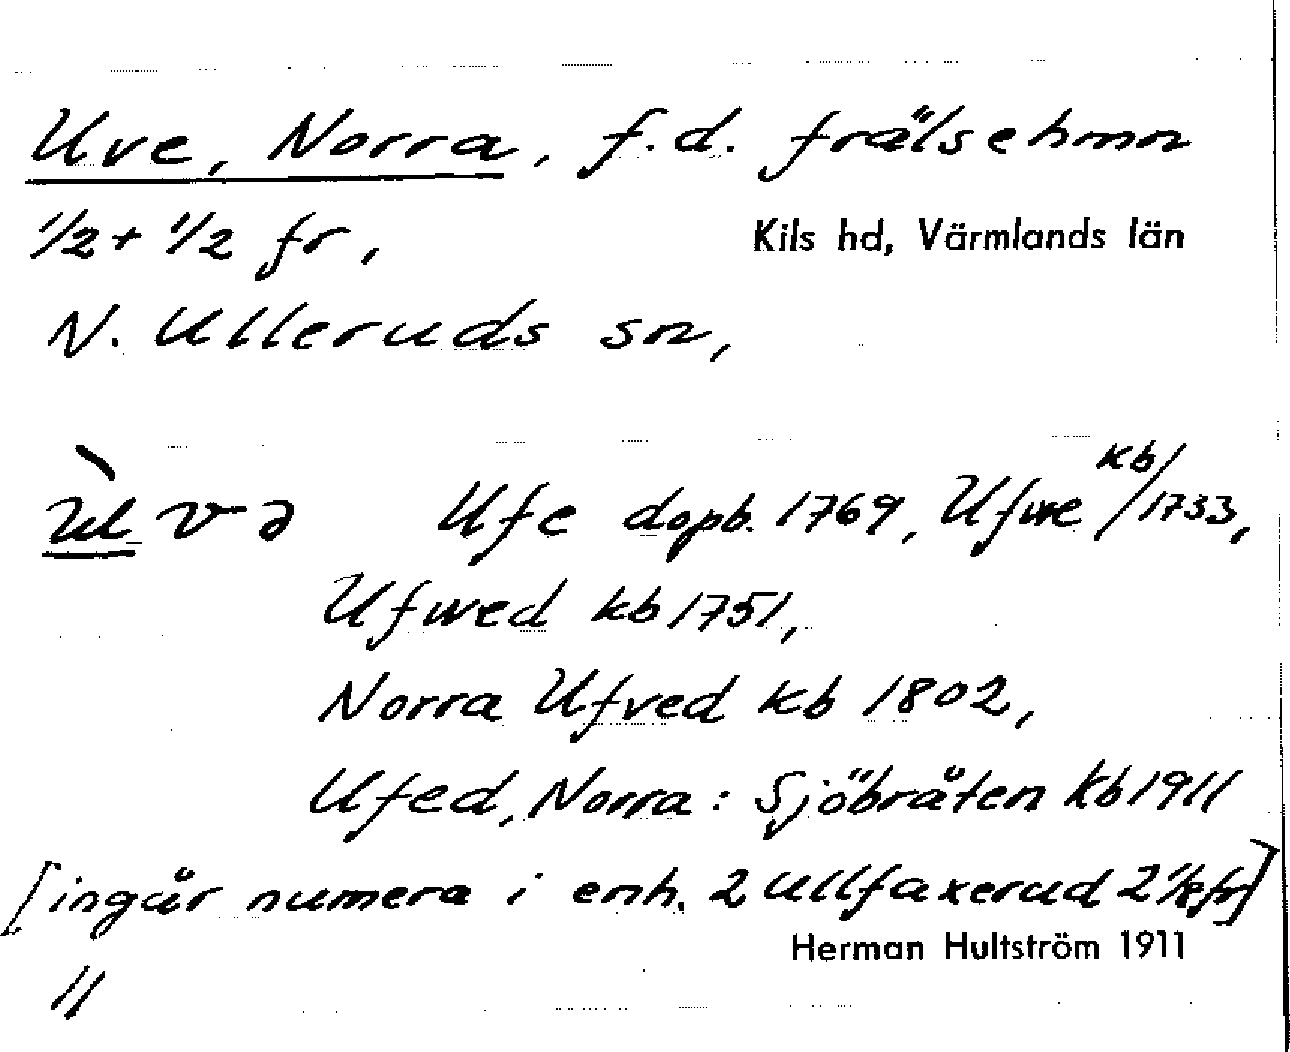 Uve, Norra, f.d. frälsehmn
1/2 + 1/2 fr,
Kils hd, Värmlands län
N. Ulleruds sn,
ùvə
Ufe dopb. 1769, Ufwe kb/1733,
Ufwed kb 1751,
Norra Ufved kb 1802,
Ufed, Norra: Sjöbråten kb 1911
[ingår numera i enh. 2 Ullfaxerud 2 1/2 fr]
Herman Hultström 1911
11